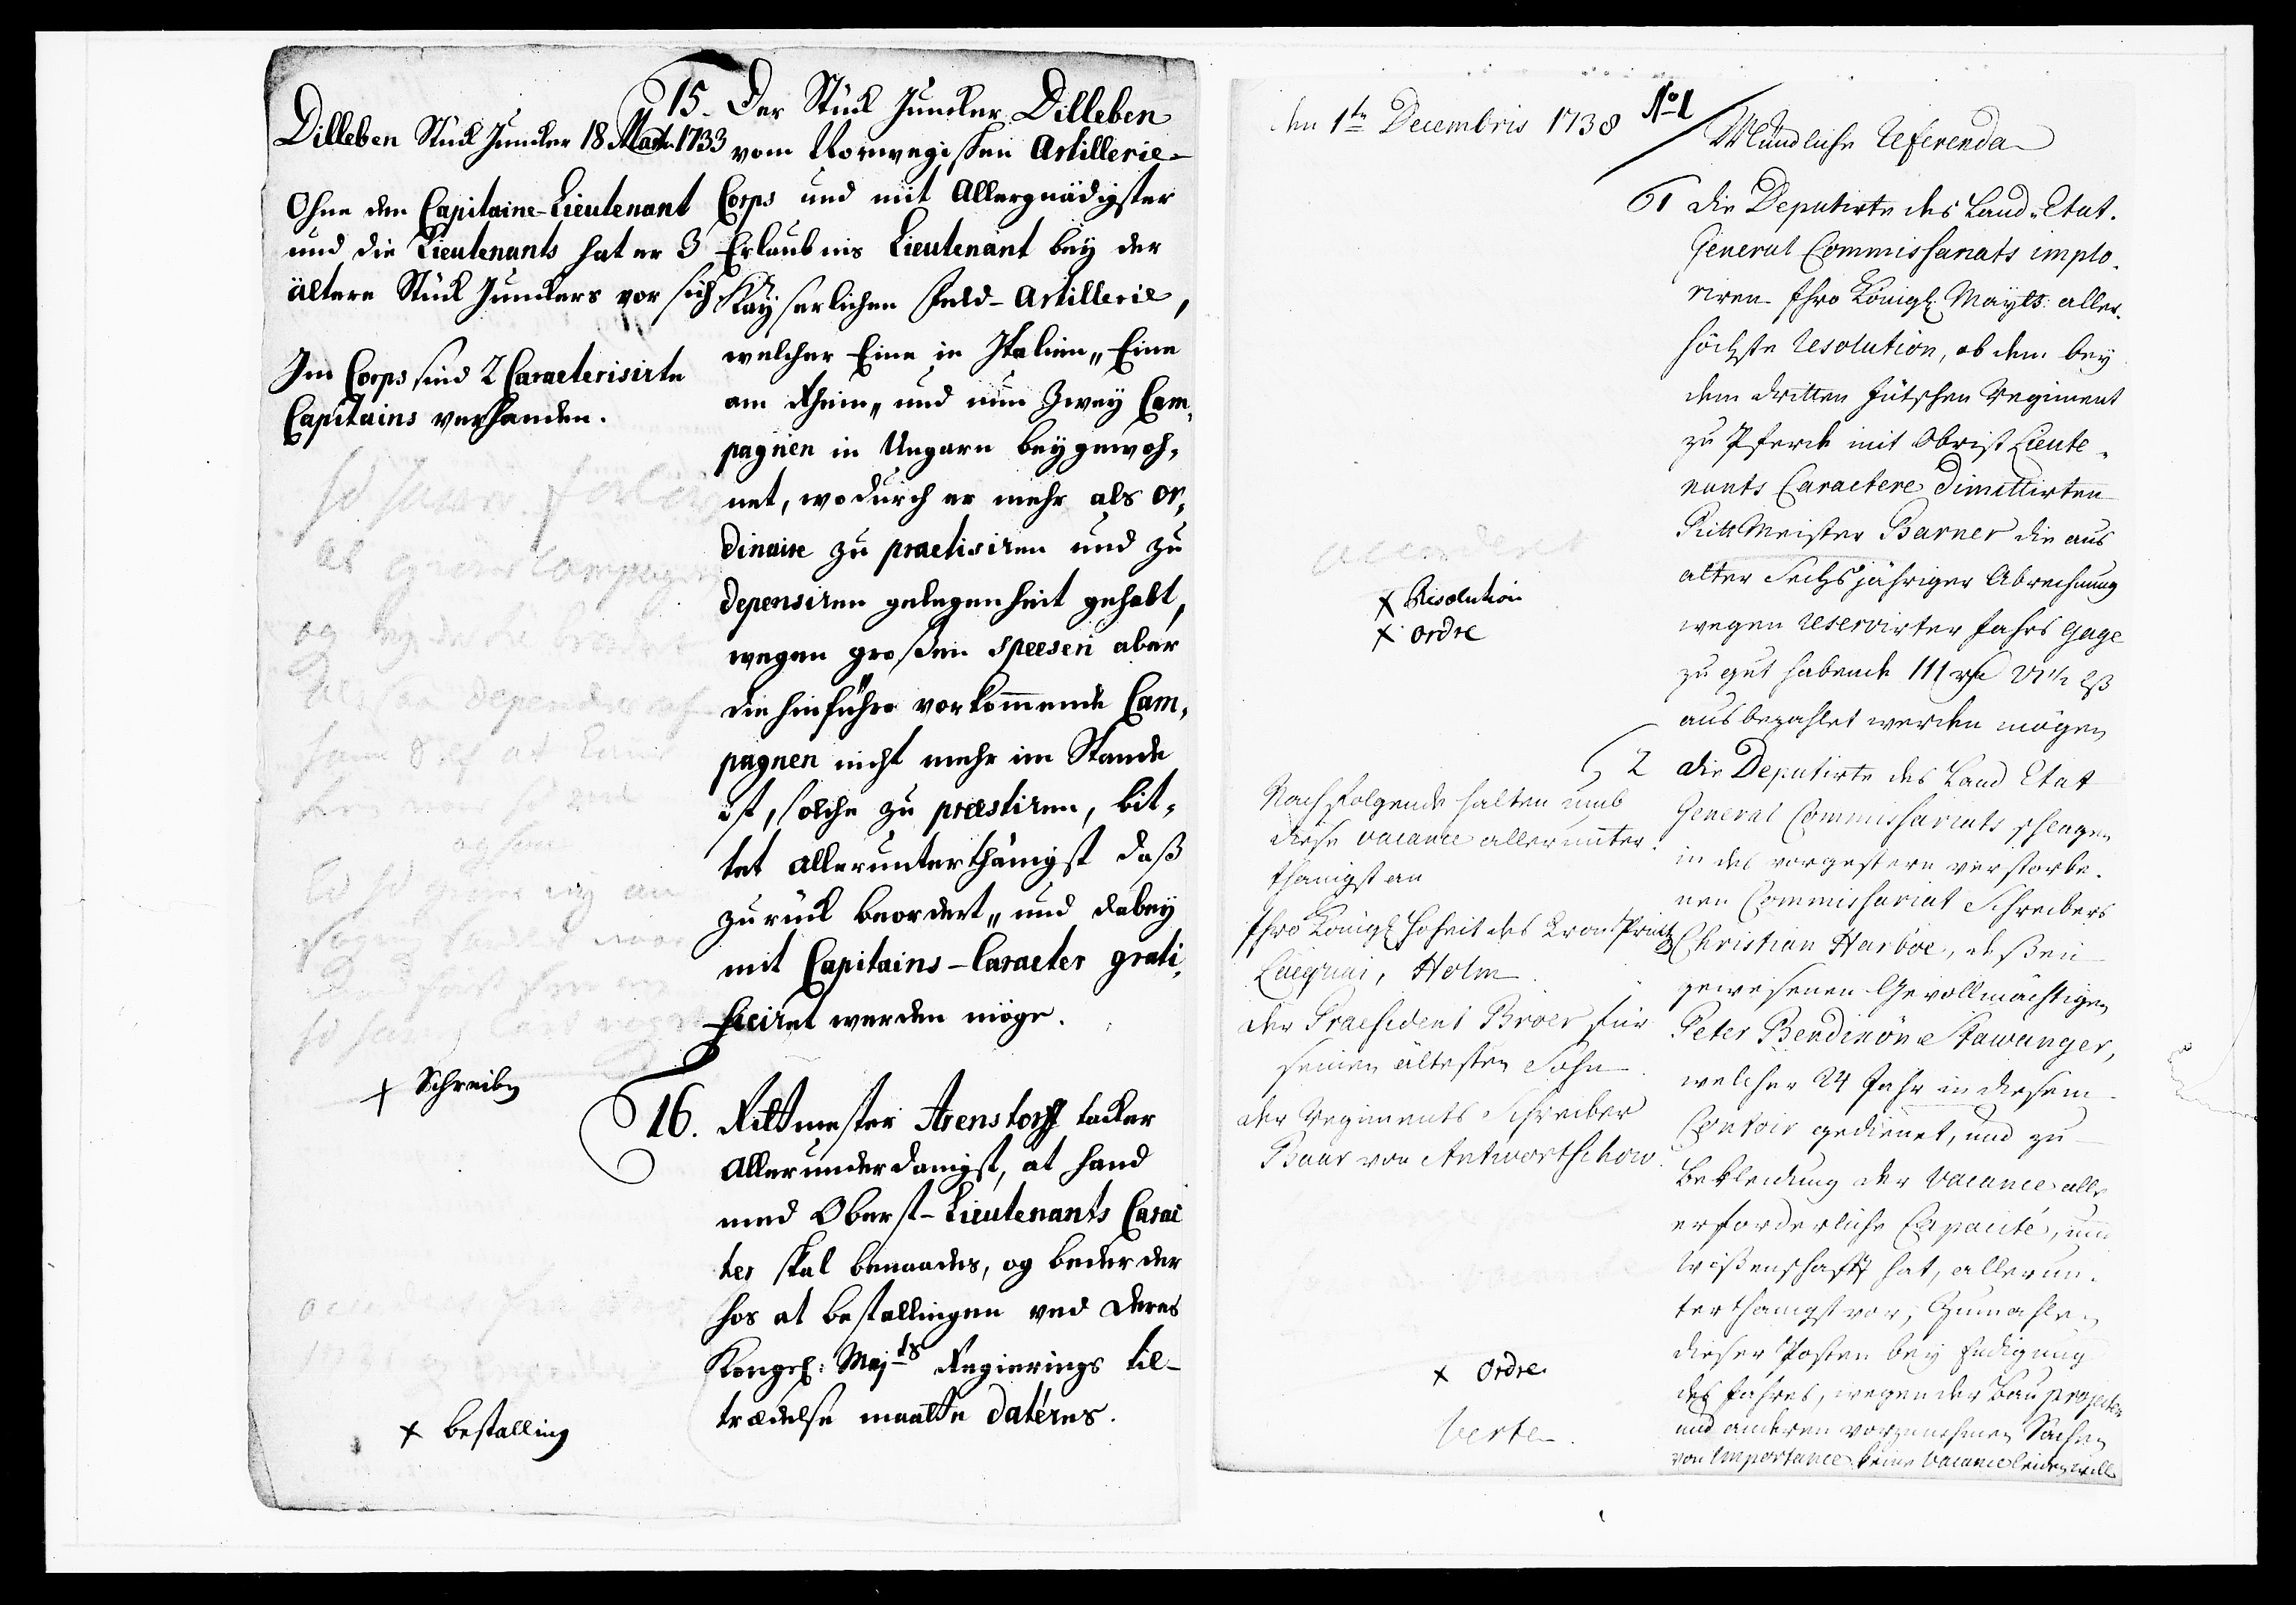 Dilleben Stück Juncker 18 Mart. 1733
Ohne den Capitaine-Lieutenant
und die Lieutenants hat er 3
ältere Stück Junckers vor sich
Im Corps sind 2 Caracterisirte
Capitains verhanden.
+ Schreiben
+ bestalling
15. Der Stück Juncker Dilleben
vom Norwegischen Artillerie-
Corps und mit Allergnädigster
Erlaubnis Lieutenant bey der
Kayserlichen Feld-Artillerie,
welcher Eine in Italien, Eine
am Rhein, und nun Zwey Cam-
pagnien in Ungarn beygewoh-
net, wodurch er mehr als or-
dinaire zu practisiren und zu
depensiren gelegenheit gehabt,
wegen großen speesen aber
die hinführo vorkommende Cam-
pagnen nicht mehr im Stande
ist, solche zu præstiren, bit-
tet allerunterthänigst daß
zurück beordert, und dabey
mit Capitains-Caracter grati-
ficiret werden möge.
16. Rittmester Arenstorff tacker
allerunderdanigst, at hand
med Oberst-Lieutenants Carac
ter skal benaades, og beder der
hos at bestallingen ved Deres
Kongel: Majts Regierings til-
trædelse maatte datéres.
den 1ten Decembris 1738
No 1
Mündliche Referenda
1 Die Deputirte des Land-Etat-
General Commissariats implo-
riren Ihro Königl: Mayts: aller-
höchste Resolution, ob dem bey
dem dritten Jütschen Regiment
zu Pferde mit Obrist Lieute-
nants Caractere dimittirten
Ritt Meister Barner die aus
alter Sechsjähriger Abrechnung
wegen reservirter Jahrs gage
zu gut habende 111
ausbezahlet werden mögen
+ Resolution
+ ordre
2 Die Deputirte des Land Etat
General Commissariats schlagen
in des vorgestern verstorbe-
nen Commissariat Schreibers
Christian Harboe, deßen
gewesenen Gevollmächtigen
Peter Stawanger,
welcher 24 Jahr in diesem
Contoir gedienet, und zu
Bekleidung der Vacance alle
erforderliche Capacité, und
Wißenschafft hat, allerun-
terthänigst vor, Zumahlen
dieser Posten bey Endigung
des Jahres, wegen der Bau projecten
und anderen vorzunehmen Sachen
von Importance keine Vacance leiden will
Nachfolgende halten umb
diese vacance allerunter-
thänigst an
Ihro Königl Hoheit des Cron Printz
Lacquai, Holm
der Præsident Broer für
seinen ältesten Sohn
der Regiments Schreiber
Baar von Antwortschow.
+ Ordre
verte